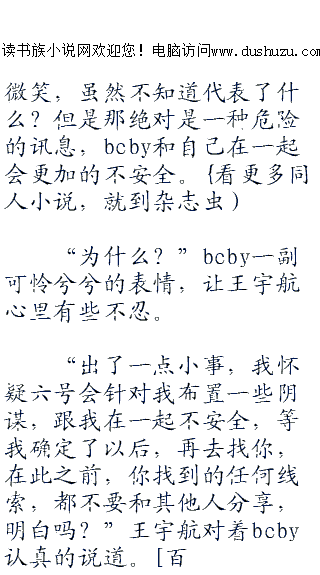 读书族小说网欢迎您！电脑访问www.dushuzu.com
微笑，虽然不知道代表了什
么？但是那绝对是一种危险
的讯息，bcby和自己在一起
会更加的不安全。{看更多同
人小说，就到杂志虫）
“为什么？”bcby一副
可怜兮兮的表情，让王宇航
心里有些不忍。
“出了一点小事，我怀
疑六号会针对我布置一些阴
谋，跟我在一起不安全，等
我确定了以后，再去找你，
在此之前，你找到的任何线
索，都不要和其他人分享，
明白吗？”王宇航对着bcby
认真的说道。[百